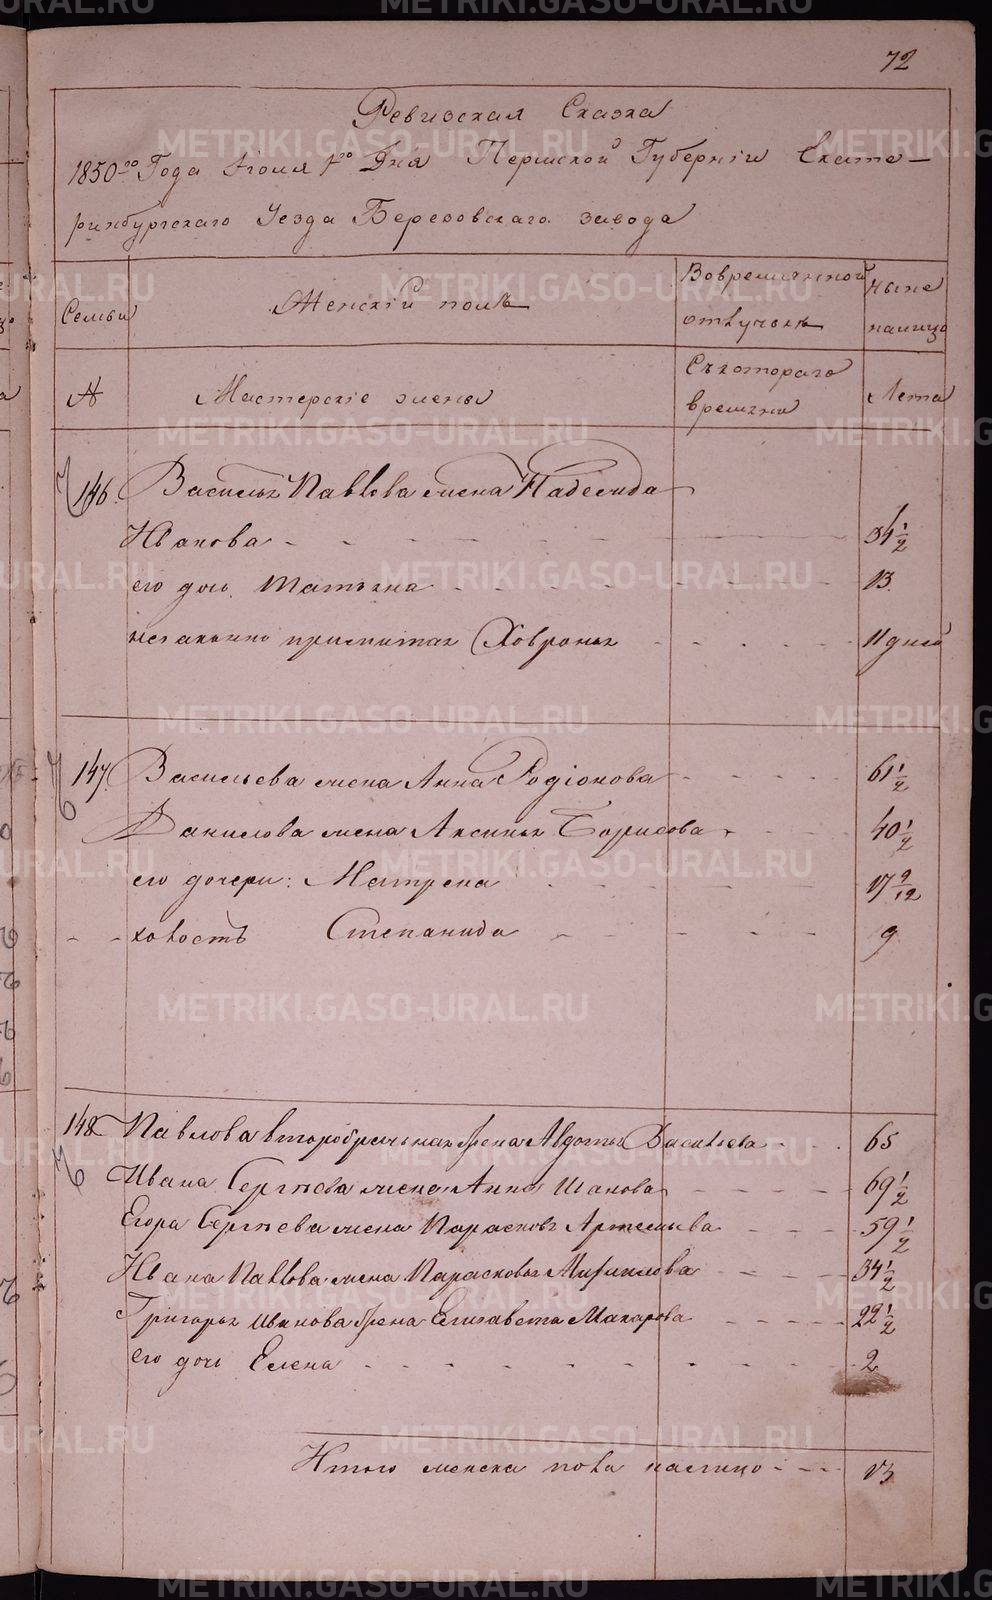 72
Ревизская Сказка
1850го Года Июля 1го Дня Пермской Губернiи Екате-
ринбургскаго Уезда Березовскаго завода
Семьи
Женскiй полъ
Вовременной отлучкѣ
ныне налицо
№
Мастерскiе жены
Съкотораго времяни
Лета
146. Василья Павлова жена Надежида
Иванова 34 1/2
его дочь Татьяна 13
незаконно прижитая Ховронья 11 дней
147. Васильева жена Анна Родiонова 61 1/2
Данилова жена Аксинья Борисова 40 1/2
его дочери: Матрена 17 9/12
Степанида 9
148 Павлова второбрачьная жена Авдотья Васильева 65
Ивана Сергѣева жена Анна Иванова 69 1/2
Егора Сергѣева жена Парасковья Артемьева 59 1/2
Ивана Павлова жена Парасковья 34 1/2
Григорья Иванова жена Елизавета Макарова 22 1/2
его дочь Елена 2
Итого женска пола налицо 13
METRIKI.GASO-URAL.RU